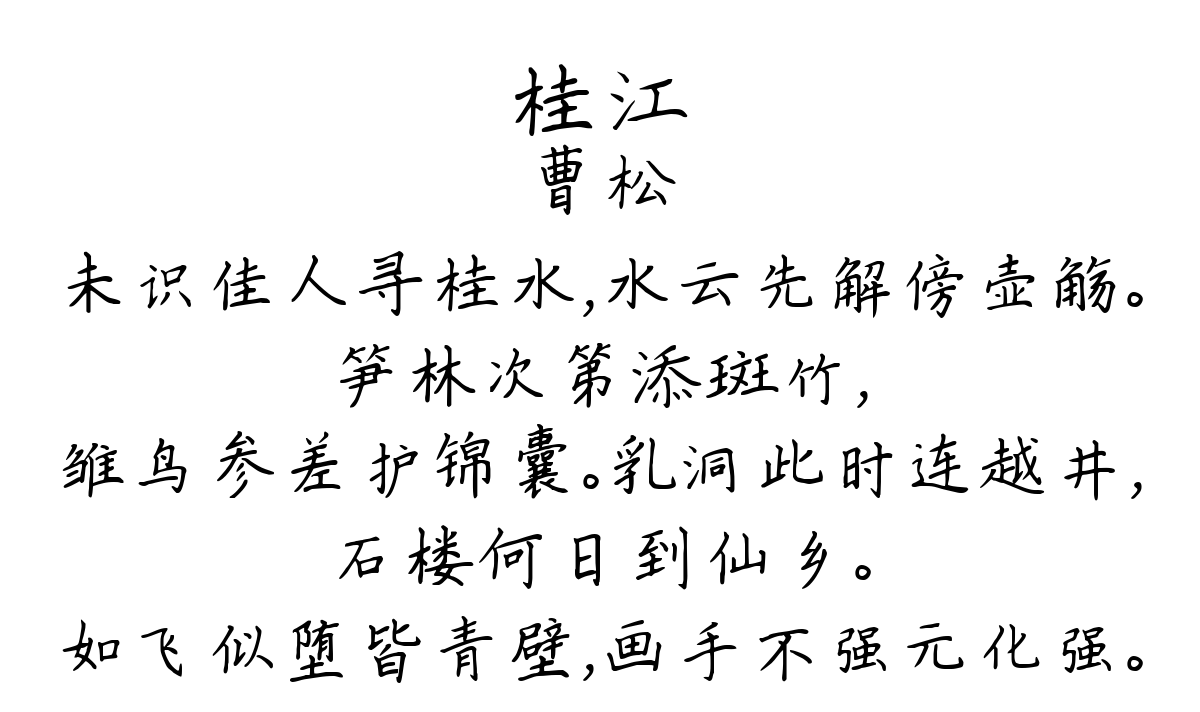 桂江
曹松
未识佳人寻桂水,水云先解傍壶觞。
笋林次第添斑竹,
雏鸟参差护锦囊。乳洞此时连越井,
石楼何日到仙乡。
如飞似堕皆青壁,画手不强元化强。